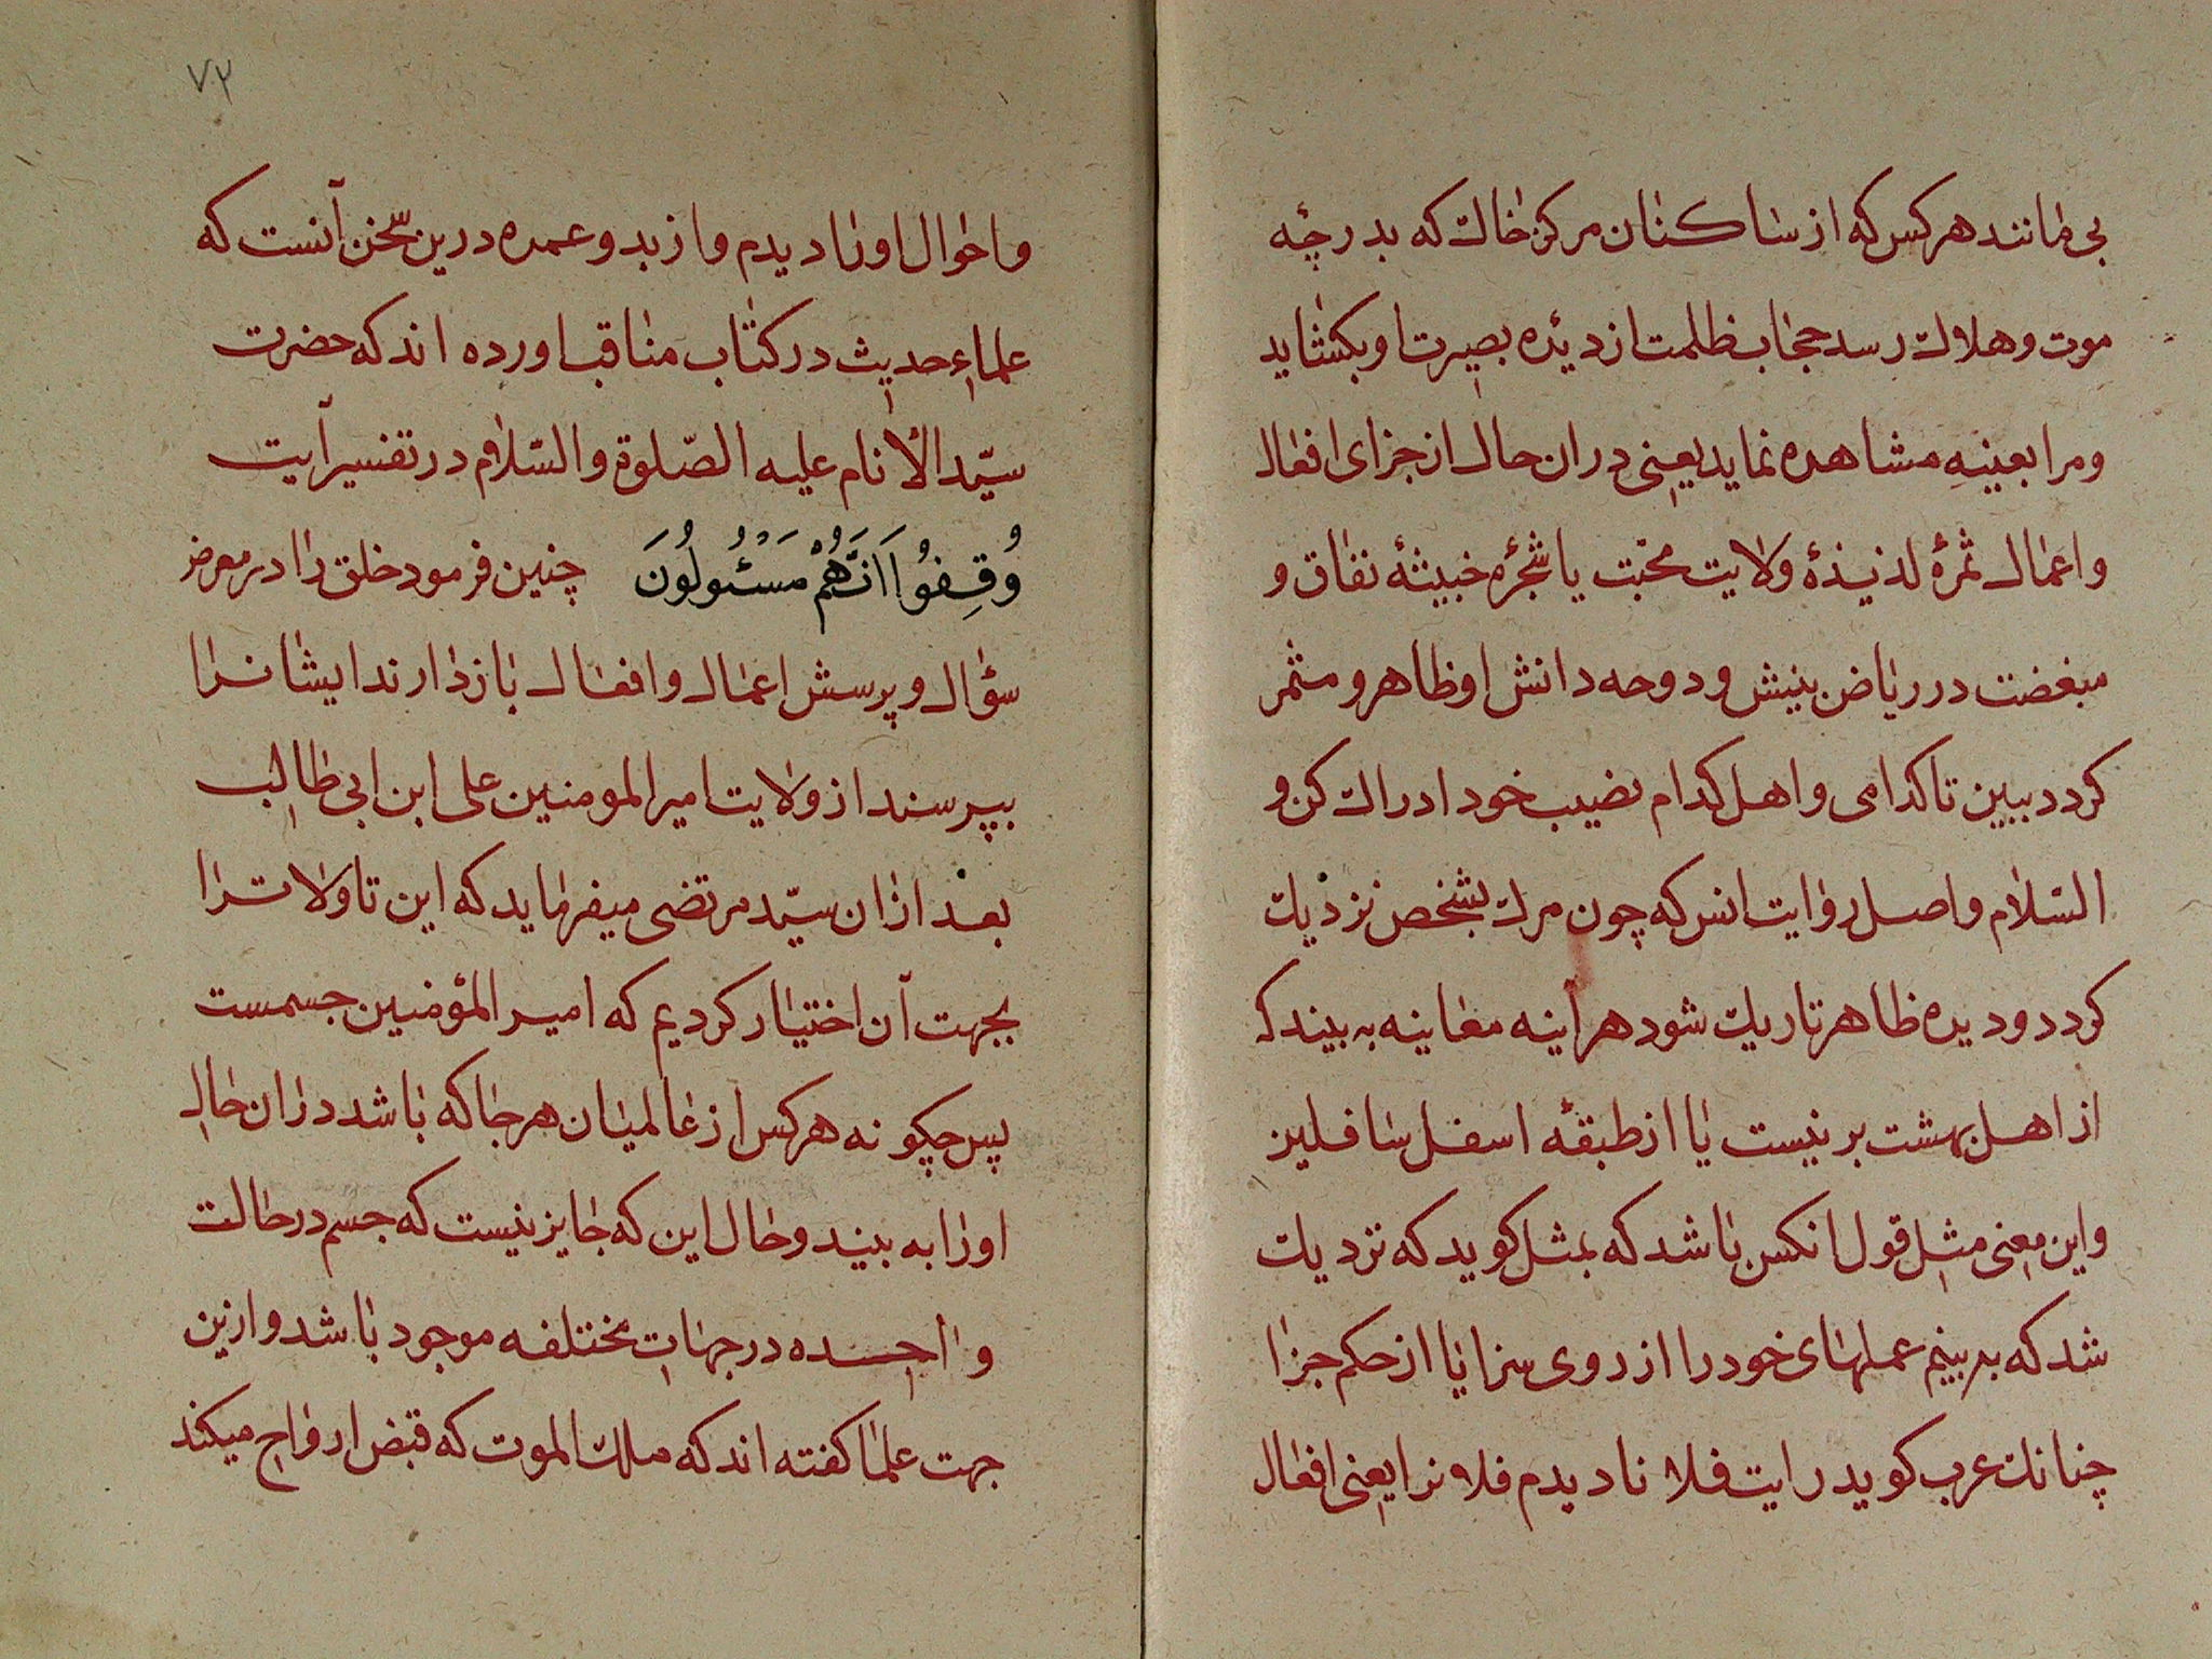 بی مانند هرکس که از ساکنان مرکز خاک که بدرجه
موت و هلاک رسد حجاب ظلمت از دیده بصیرت او بکشاید
و مرا بعینه مشاهده نماید یعنی دران حال از جزای افعال
و اعمال ثمرهٔ لذیذهٔ ولایت محبت یا شجرهٔ خبیثهٔ نفاق و
مبغضت در ریاض بینش و دوحه دانش او ظاهر و مثمر
کردد ببین تا کدامی و اهل کدام نصیب خود ادراک کن و
السّلام و اصل روایت انس که چون مرک بشخص نزدیک
کردد و دیده ظاهر تاریک شود هر آینه معاینه به بیند که
از اهل بهشت برینست یا از طبقهٔ اسفل سافلین
و این معنی مثل قول انکس باشد که بمثل کوید که نزدیک
شد که به بینم عملهای خود را از روی سزا یا از حکم جزا
چنانک عرب کوید رایت فلانا دیدم فلانرا یعنی افعال
۷۲
و احوال او را دیدم و از بد و عمده درین سخن آنست که
علماء حدیث در کتاب مناقب اورده اند که حضرت
سیّد الأنام علیه الصّلوة والسّلام در تفسیر آیت
وُقِفُوا اَنَّهُمْ مَسْئُولُونَ چنین فرمود خلق را در معرض
سؤال و پرسش اعمال و افعال بازدارند ایشانرا
بپرسند از ولایت امیر المومنین علی ابن ابی طالب
بعد ازان سیّد مرتضی میفرماید که این تاولاترا
بجهت آن اختیار کردیم که امیر المؤمنین جسمست
پس چکونه هرکس از عالمیان هر جا که باشد دران حال
او را به بیند و حال این که جایز نیست که جسم در حالت
واحده در جهات مختلفه موجود باشد و ازین
جهت علما کفته اند که ملک الموت که قبض ارواح میکند